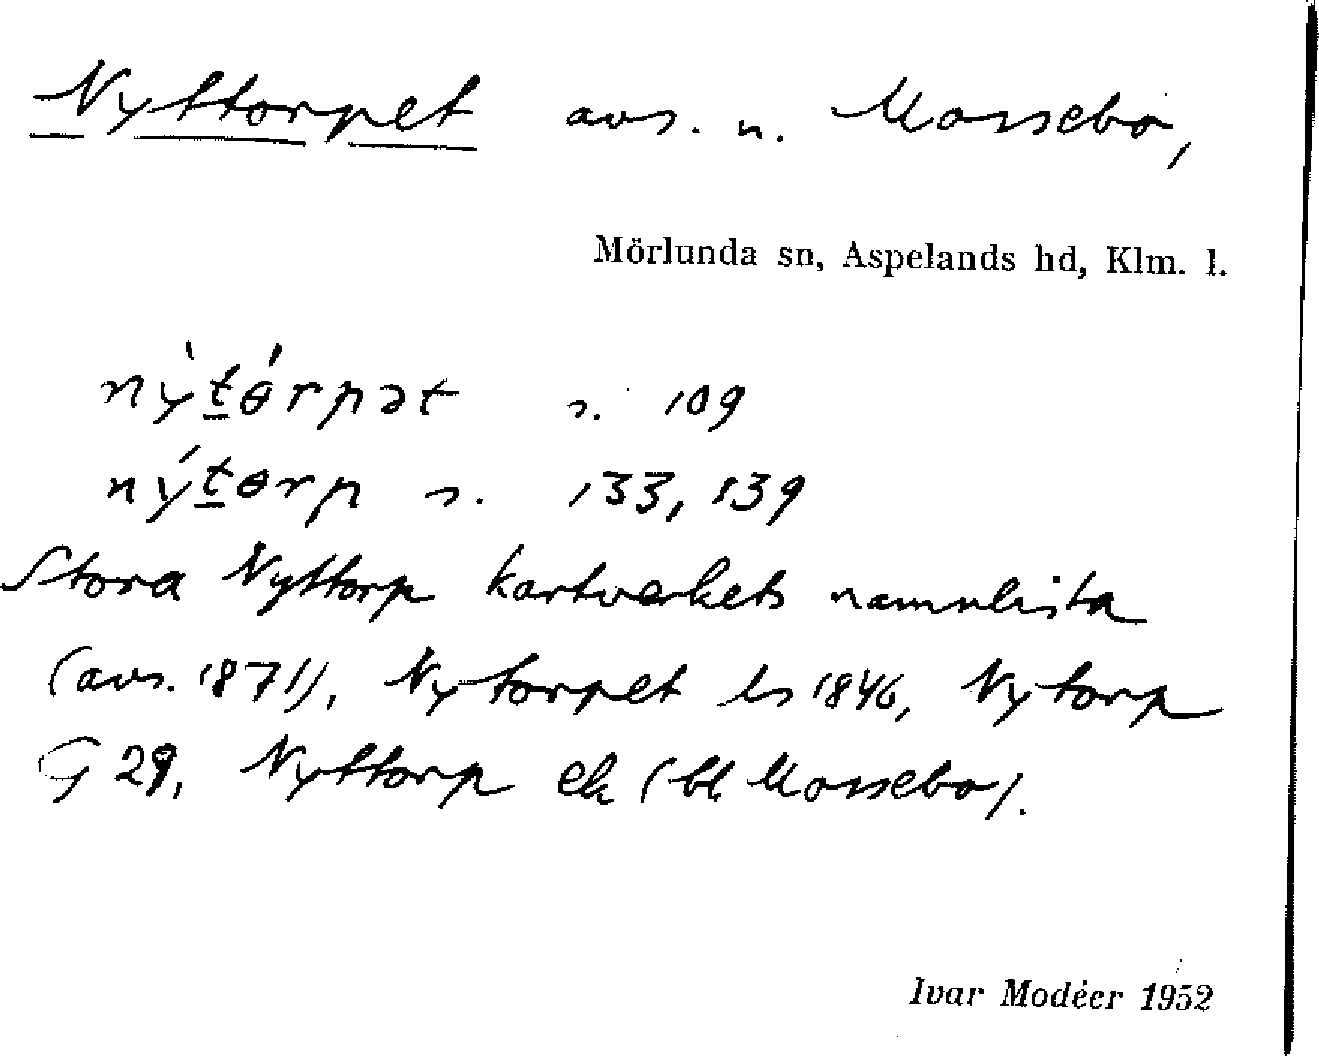 Nyttorpet avs. u. Mossebo,
Mörlunda sn, Aspelands hd, Klm. l.
nỳt̲ɵ́rpət s. 109
nýt̲ɵrp s. 133, 139
Stora Nyttorp kartverkets namnlista
(avs. 1871), Nytorpet ls 1846, Nytorp
G 29, Nyttorp ek (bl Mossebo).
Ivar Modéer 1952